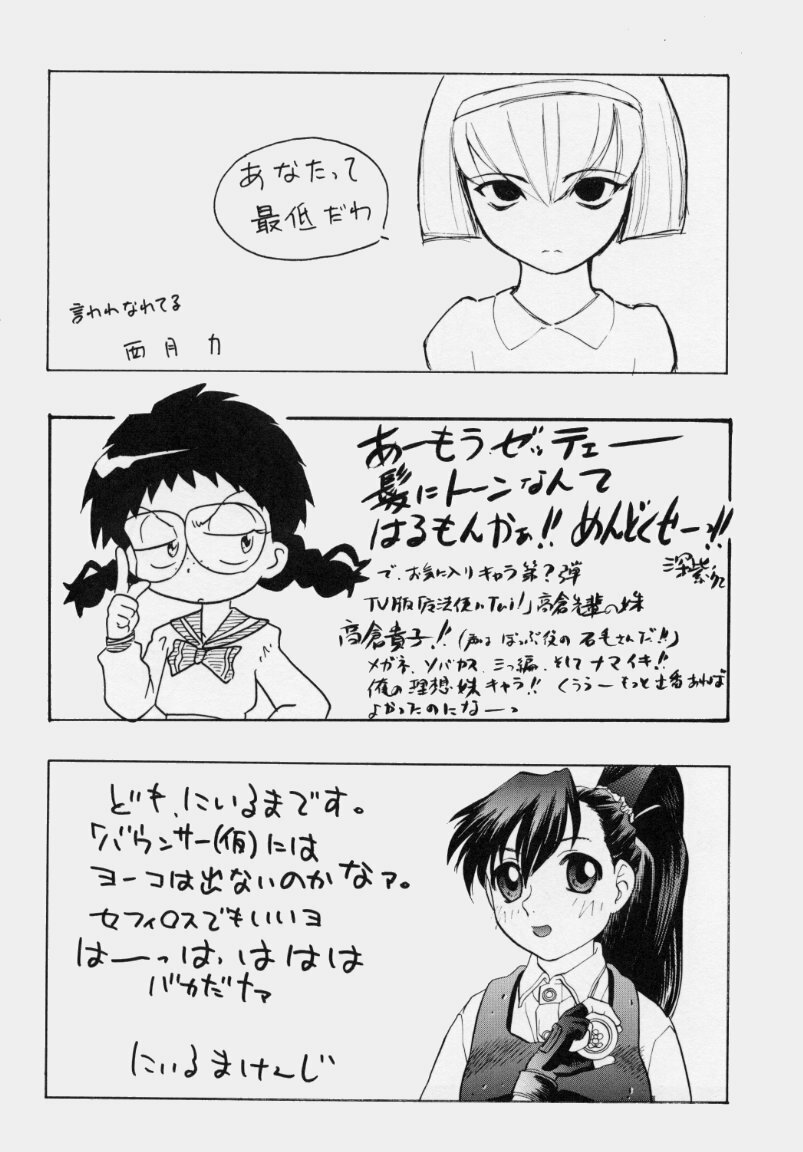 あなたって
最低だわ
言われなれてる
西月 力
あーもうゼッテェー
髪にトーンなんて
はるもんかぁ!! めんどくせーっ!!
で、お気に入りキャラ第?弾
TV版「魔法使いTai!」高倉先輩の妹
高倉貴子!!
メガネ、ソバカス、三つ編、そしてナマイキ!!
俺の理想妹キャラ!! くうぅーもっと出番あれば
よかったのになーっ
ども、にいるまです。
「バウンサー(仮)には
ヨーコは出ないのかなァ。
セフィロスでもいいヨ
はーっは、ははは
バカだナァ
にいるまけんじ